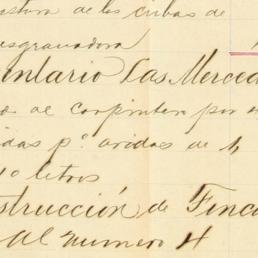 stura de las cubas de
esgranadora
entario Las Merced
de carpintero por
idas pº aridos de
10 litros
strucción de Finca
Al numero 4